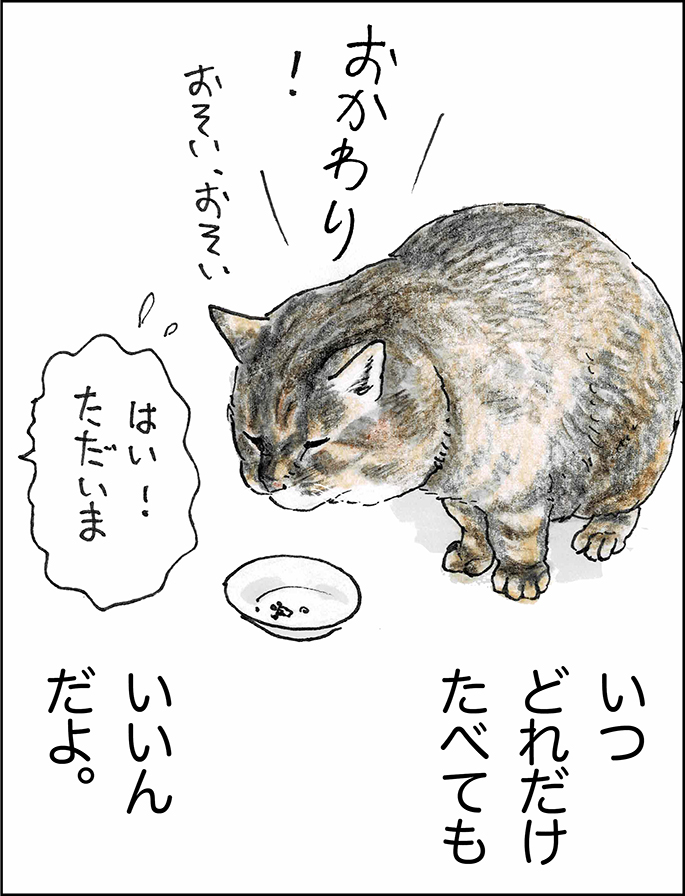 おかわり
!
おそい、おそい
はい!
ただいま
いつ
どれだけ
たべても
いいん
だよ。